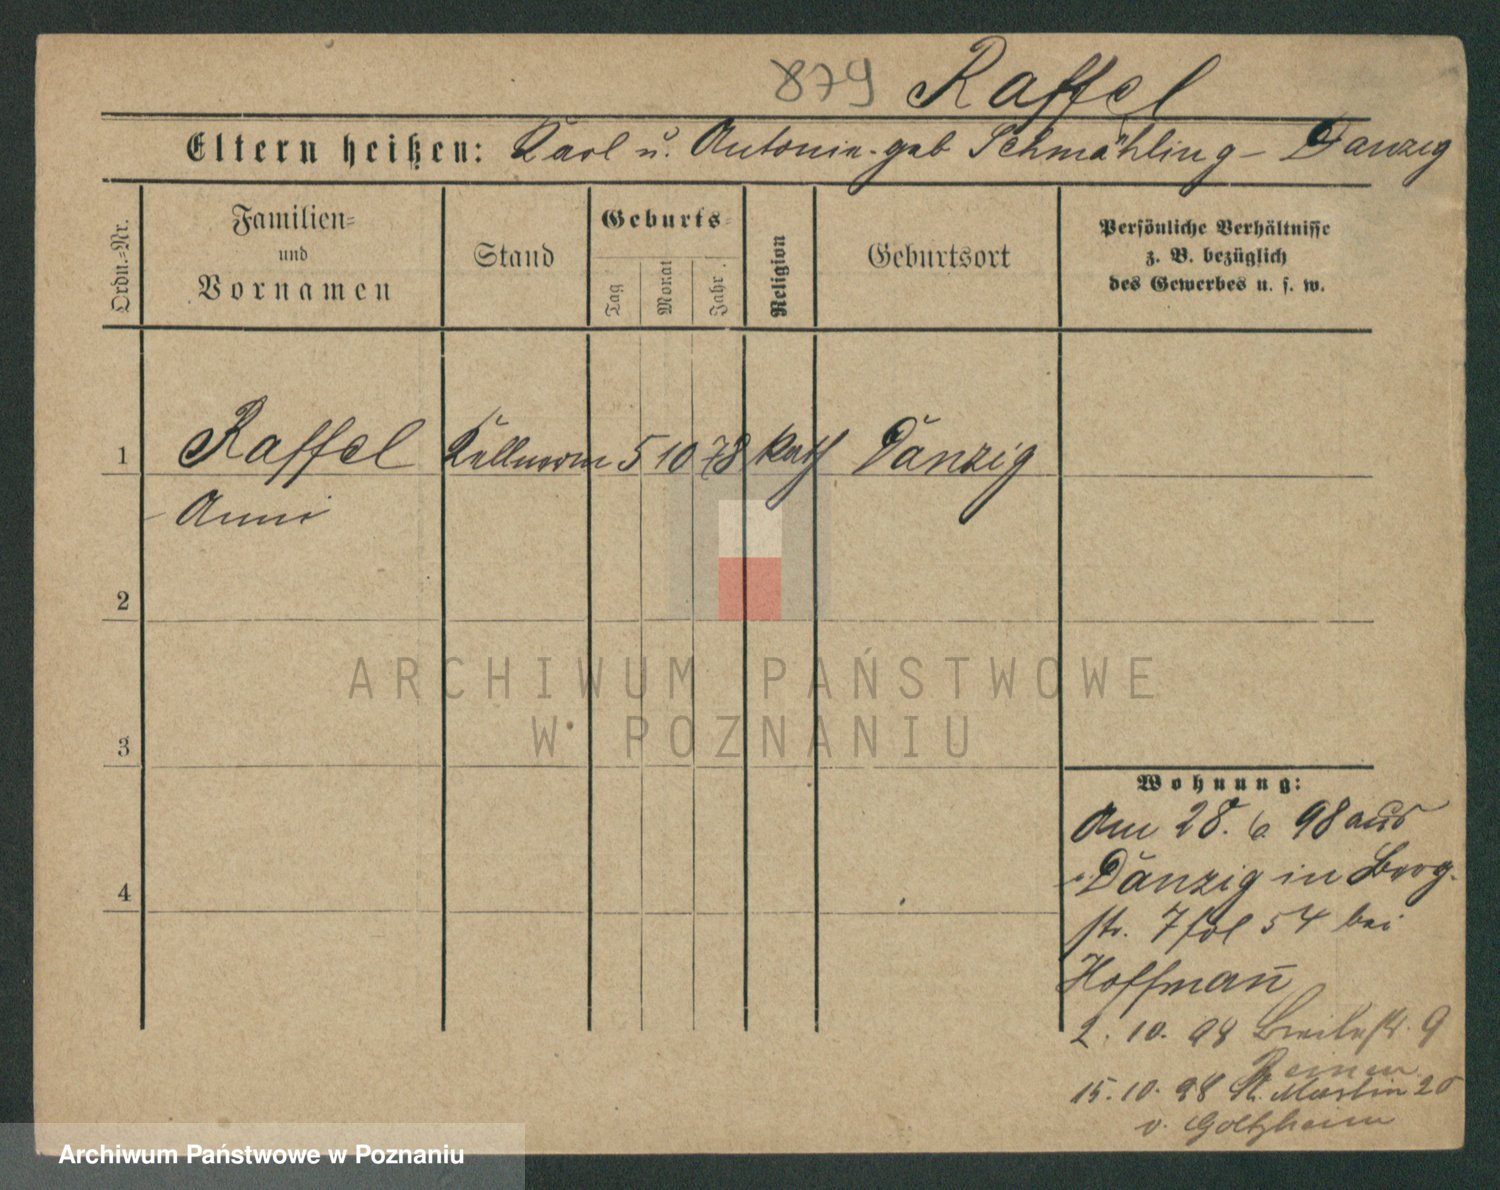 879 Raffel
Eltern heißen: Karl u. Antonie geb Schmähling - Danzig
Ordn.-Nr.
Familien-
und
Vornamen
Stand
Geburts-
Tag
Monat
Jahr
Religion
Geburtsort
Persönliche Verhältnisse
z. B. bezüglich
des Gewerbes u. s. w.
1 Raffel Kellnerin 5 10 78 Kath Danzig
Anni
2
3
4
ARCHIWUM PAŃSTWOWE
W POZNANIU
Wohnung:
Am 28. 6. 98 aus
Danzig in Berg-
str. 7 fol 54 bei
Hoffman̄
2. 10. 98 Breitestr. 9
15. 10. 98 St. Martin 20
v. Goltzheim
Archiwum Państwowe w Poznaniu